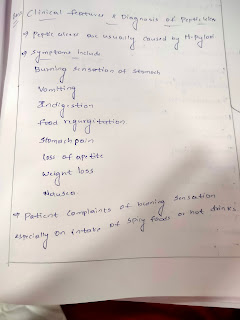 Clinical features & Diagnosis of Peptic ulcer
→ Peptic ulcers are usually caused by H.pylori
→ Symptoms Include
Burning sensation of stomach
Vomitting
Indigestion
Food regurgitation
Stomach pain
loss of apetite
Weight loss
Nausea
→ Patient complaints of burning sensation
especially on intake of spicy foods or hot drinks